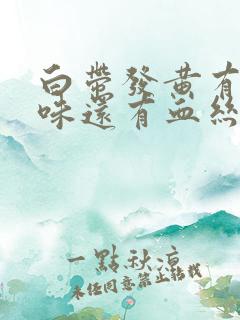 白帶發黃有
味還有血絲
一點秋涼
未經同意禁止轉載